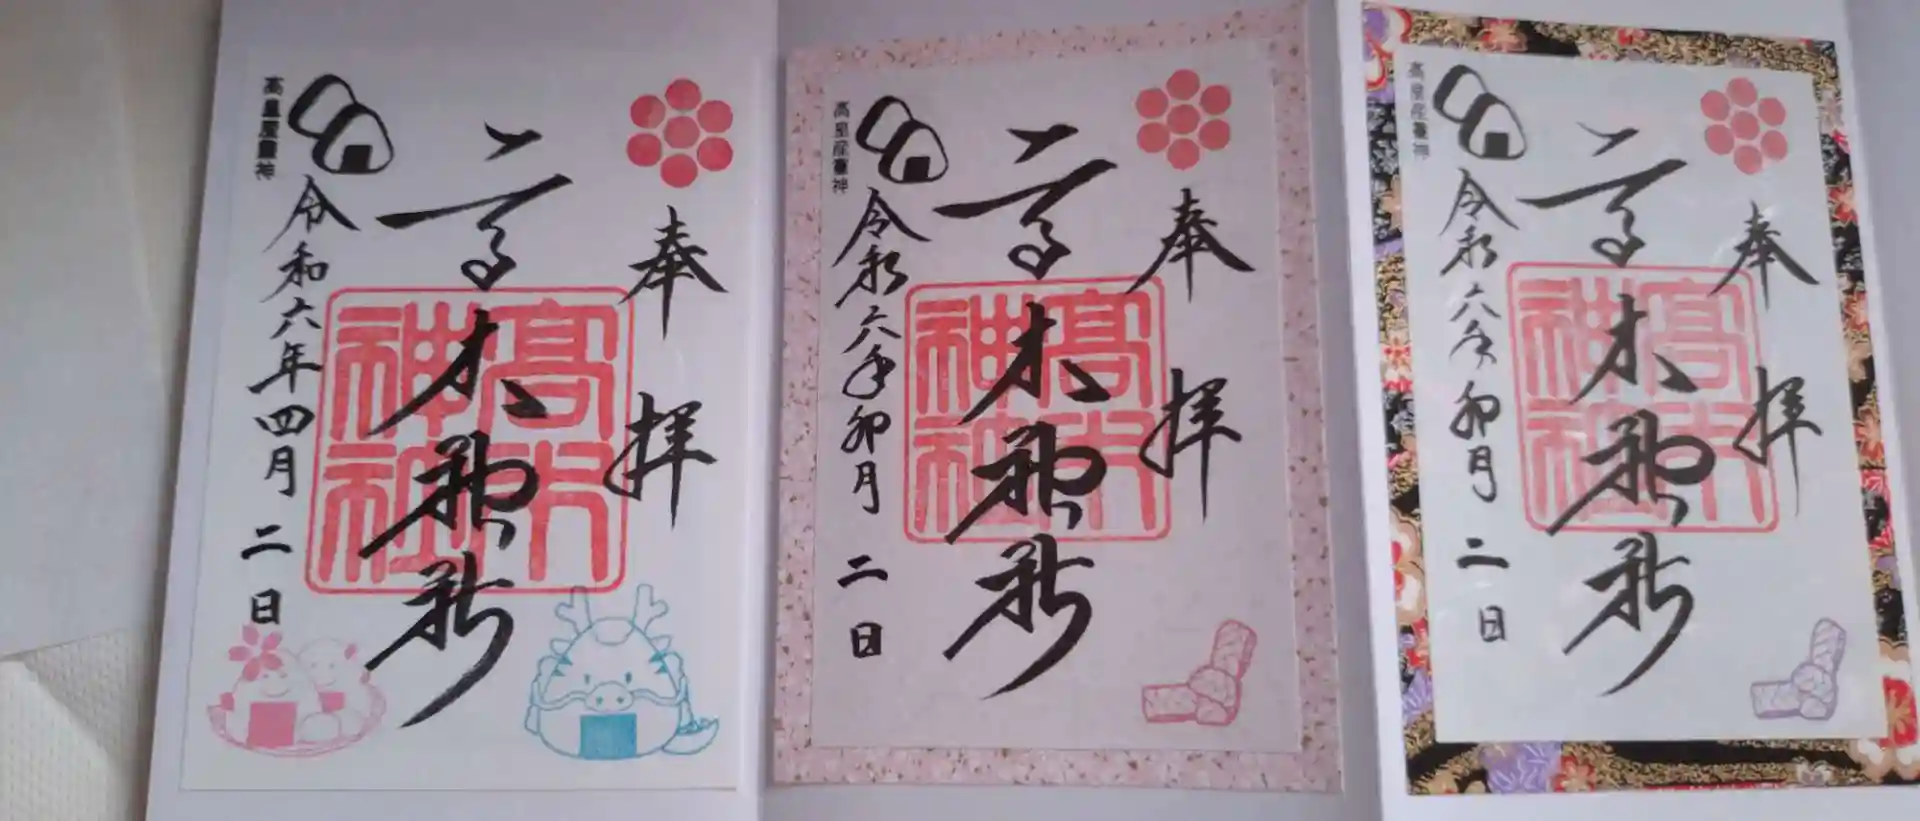 奉拝
高木神社
高木
神社
高皇産霊神
令和六年四月二日
奉拝
高木神社
高木
神社
高皇産霊神
令和六年卯月二日
奉拝
高木神社
高木
神社
高皇産霊神
令和六年卯月二日